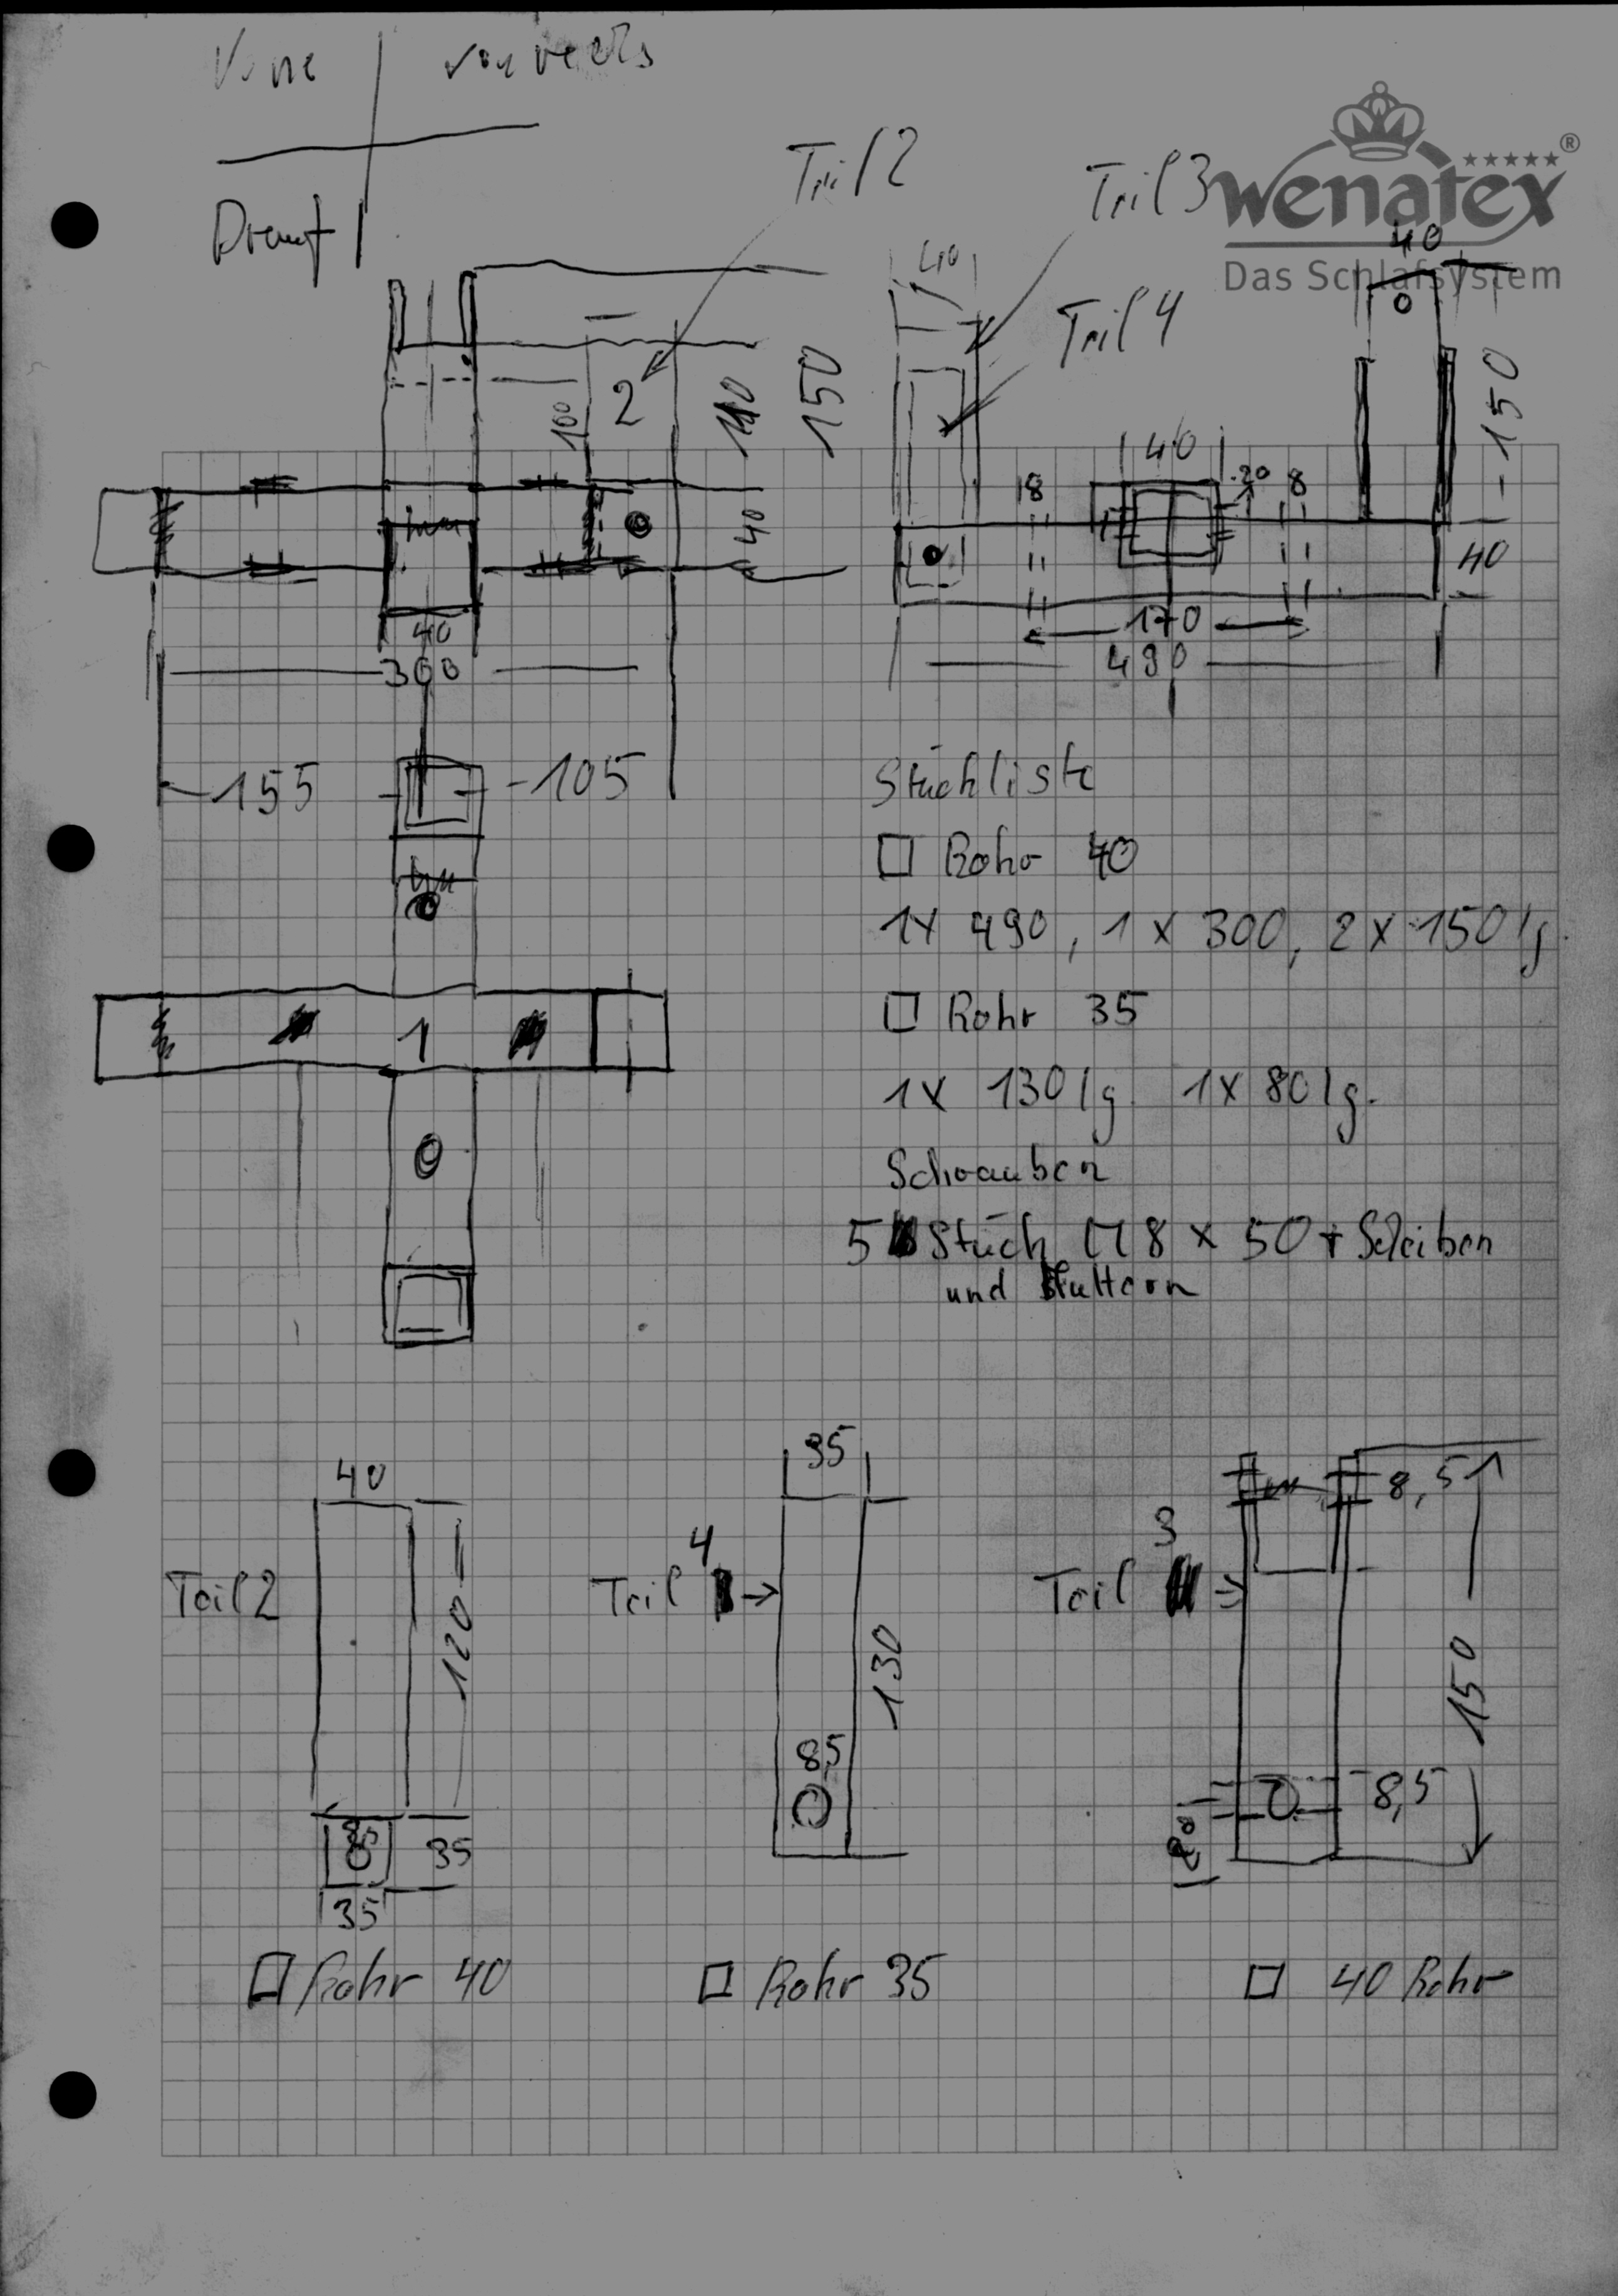 Vorne von rechts
Drauf
Teil 2
Teil 3
wenatex ®
Das Schlafsystem
40
40
Teil 4
2
100
110
150
150
40
8
20
8
40
40
40
170
300
490
155
105
Stückliste
□ Rohr 40
1x 490, 1 x 300, 2 x 150 lg.
1
□ Rohr 35
1x 130 lg. 1x 80 lg.
Schrauben
5 Stück M8 x 50 + Scheiben
und Muttern
40
35
8,5
4
3
Teil 2
Teil
Teil
120
130
150
8,5
8,5
8,5
35
35
20
□ Rohr 40
□ Rohr 35
□ 40 Rohr